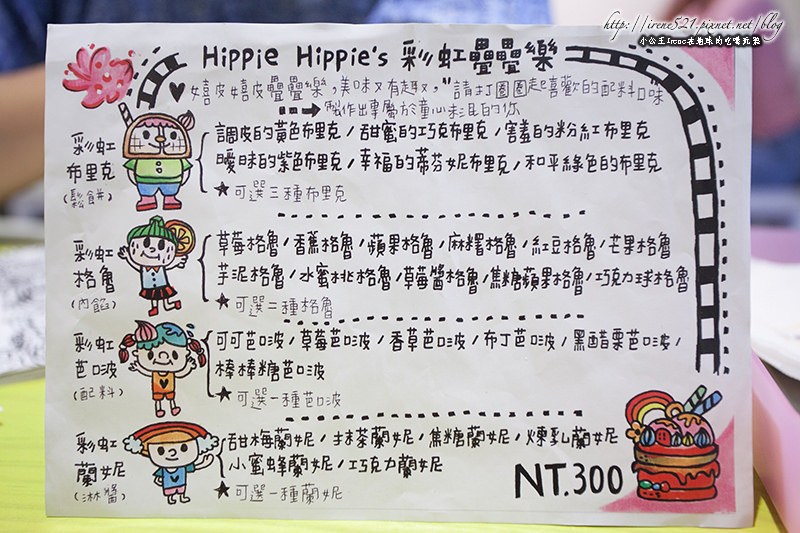 http://irene521.pixnet.net/blog
小公主Irene在地球的吃喝玩樂
Hippie Hippie's 彩虹疊疊樂
嬉皮嬉皮疊疊樂，美味又有趣，"請打圈圈起喜歡的配料口味
製作出專屬於童心未泯的你
彩虹布里克
(鬆餅)
調皮的黃色布里克/甜蜜的巧克布里克/害羞的粉紅布里克
曖昧的紫色布里克/幸福的蒂芬妮布里克/和平綠色的布里克
★可選三種布里克
彩虹格魯
(內餡)
草莓格魯/香蕉格魯/蘋果格魯/麻糬格魯/紅豆格魯/芒果格魯
芋泥格魯/水蜜桃格魯/草莓醬格魯/焦糖蘋果格魯/巧克力球格魯
★可選二種格魯
彩虹芭啵
(配料)
可可芭啵/草莓芭啵/香草芭啵/布丁芭啵/黑醋栗芭啵/
棒棒糖芭啵
★可選一種芭啵
彩虹蘭妮
(淋醬)
甜梅蘭妮/抹茶蘭妮/焦糖蘭妮/煉乳蘭妮
小蜜蜂蘭妮/巧克力蘭妮
★可選一種蘭妮
NT.300